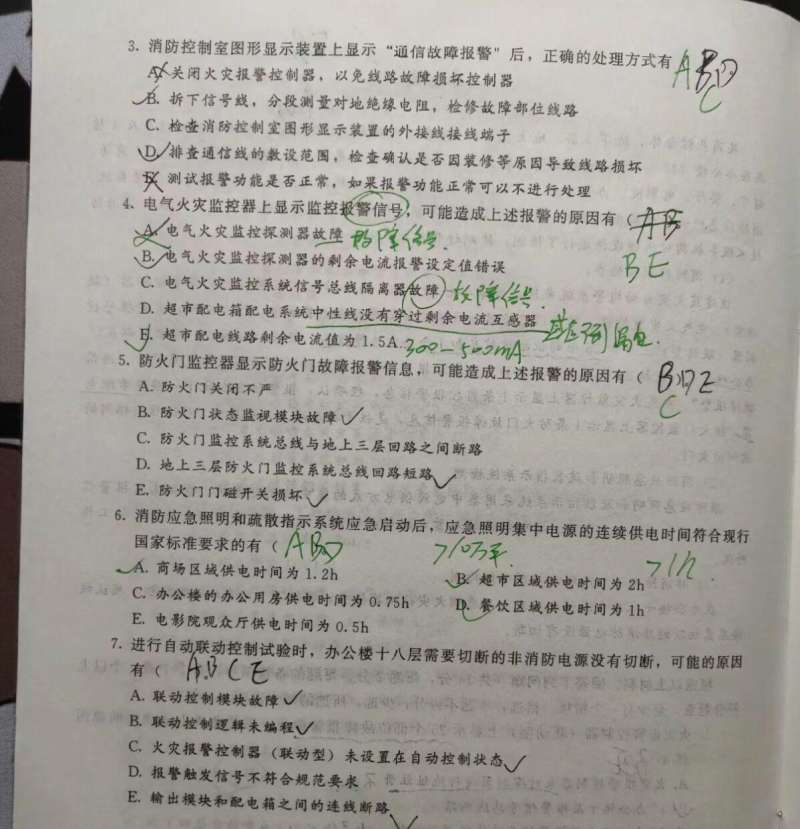 3. 消防控制室图形显示装置上显示“通信故障报警”后，正确的处理方式有 ABD
C
A. 关闭火灾报警控制器，以免线路故障损坏控制器
B. 拆下信号线，分段测量对地绝缘电阻，检修故障部位线路
C. 检查消防控制室图形显示装置的外接线接线端子
D. 排查通信线的敷设范围，检查确认是否因装修等原因导致线路损坏
E. 测试报警功能是否正常，如果报警功能正常可以不进行处理
4. 电气火灾监控器上显示监控报警信号，可能造成上述报警的原因有（ AB
A. 电气火灾监控探测器故障 故障信号.
B. 电气火灾监控探测器的剩余电流报警设定值错误 BE
C. 电气火灾监控系统信号总线隔离器故障 故障信号.
D. 超市配电箱配电系统中性线没有穿过剩余电流互感器
E. 超市配电线路剩余电流值为 1.5A. 300-500mA
5. 防火门监控器显示防火门故障报警信息，可能造成上述报警的原因有（ BDE
C
A. 防火门关闭不严
B. 防火门状态监视模块故障
C. 防火门监控系统总线与地上三层回路之间断路
D. 地上三层防火门监控系统总线回路短路
E. 防火门门磁开关损坏
6. 消防应急照明和疏散指示系统应急启动后，应急照明集中电源的连续供电时间符合现行
国家标准要求的有（ ABD >10万平. >1h
A. 商场区域供电时间为 1.2h B. 超市区域供电时间为 2h
C. 办公楼的办公用房供电时间为 0.75h D. 餐饮区域供电时间为 1h
E. 电影院观众厅供电时间为 0.5h
7. 进行自动联动控制试验时，办公楼十八层需要切断的非消防电源没有切断，可能的原因
有（ ABCE
A. 联动控制模块故障
B. 联动控制逻辑未编程
C. 火灾报警控制器（联动型）未设置在自动控制状态
D. 报警触发信号不符合规范要求
E. 输出模块和配电箱之间的连线断路